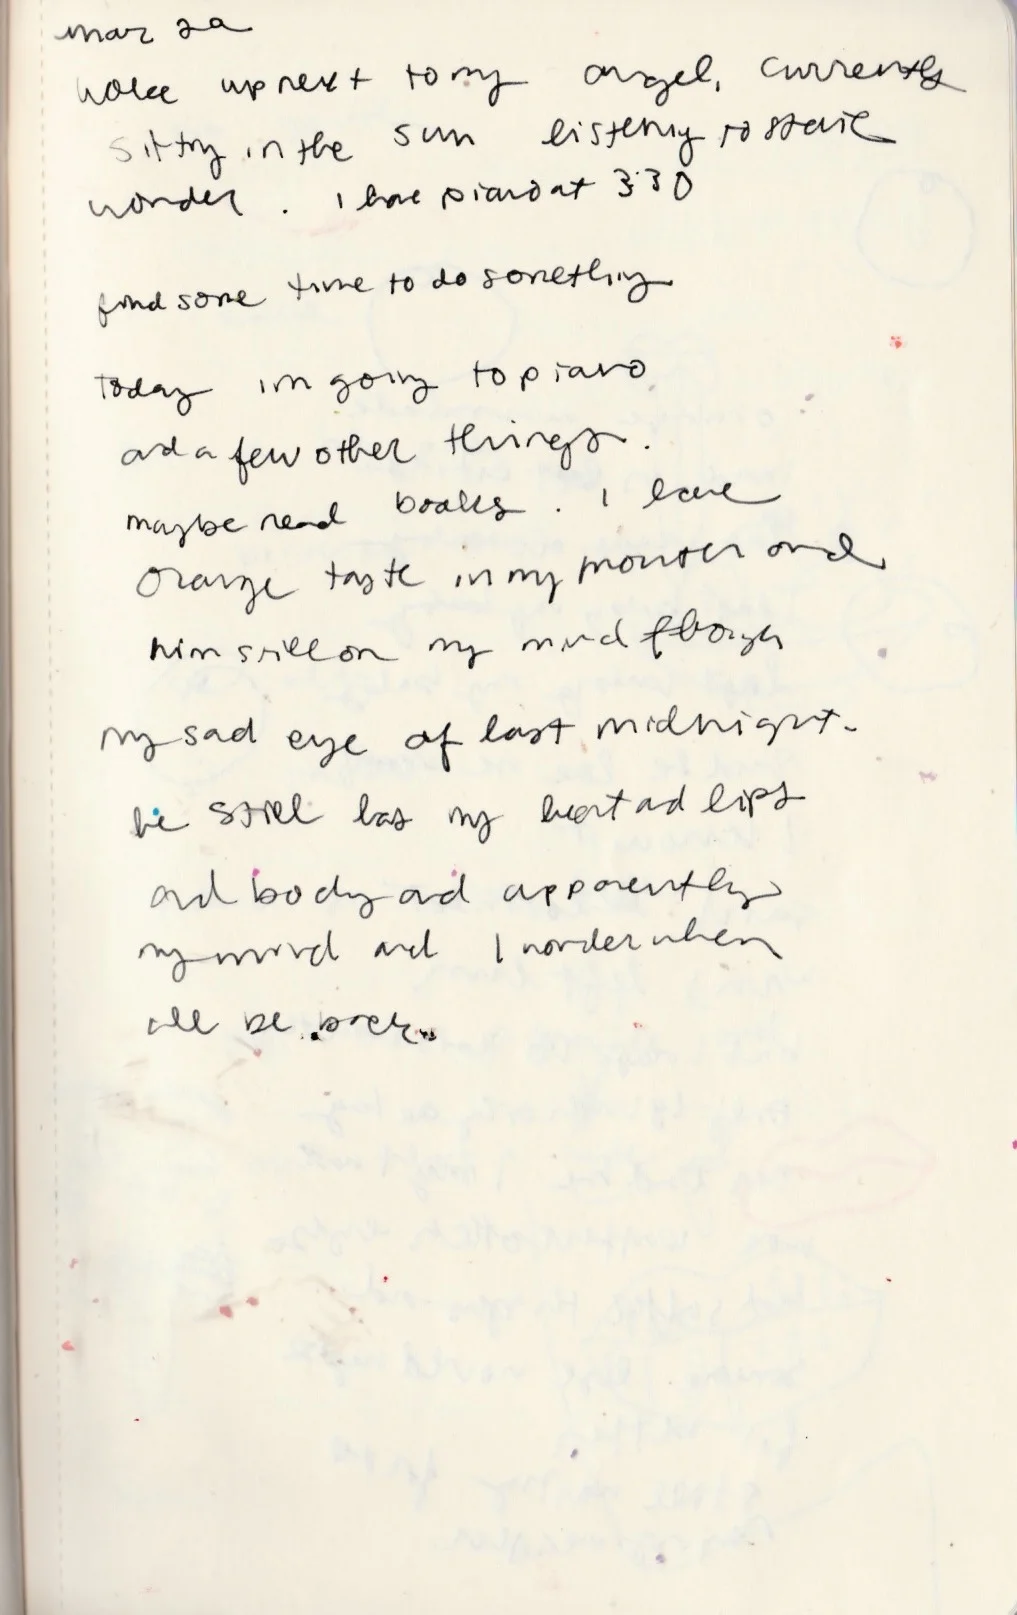 mar 29
woke up next to my angel, currently
sitting in the sun listening to stevie
wonder. i have piano at 3:30
find some time to do something
today im going to piano
and a few other things.
maybe read books. i have
orange taste in my mouth and
him still on my mind
my sad eye of last midnight.
he still has my heart and lips
and body and apparently
my mind and I wonder when
ill be back.